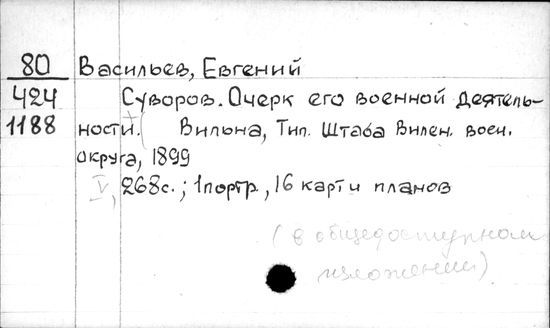 80 Васильев, Евгений
424 Суворов. Очерк его военной деятель-
1188 ности. ( Вильна, Тип. Штаба Вилен. воен.
округа, 1899
V, 268с.; 1 портр., 16 карт и планов
(в общедоступном
изложении)